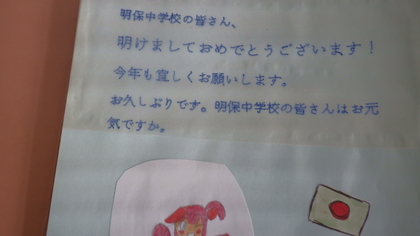 明保中学校の皆さん、
明けましておめでとうございます！
今年も宜しくお願いします。
お久しぶりです。明保中学校の皆さんはお元
気ですか。